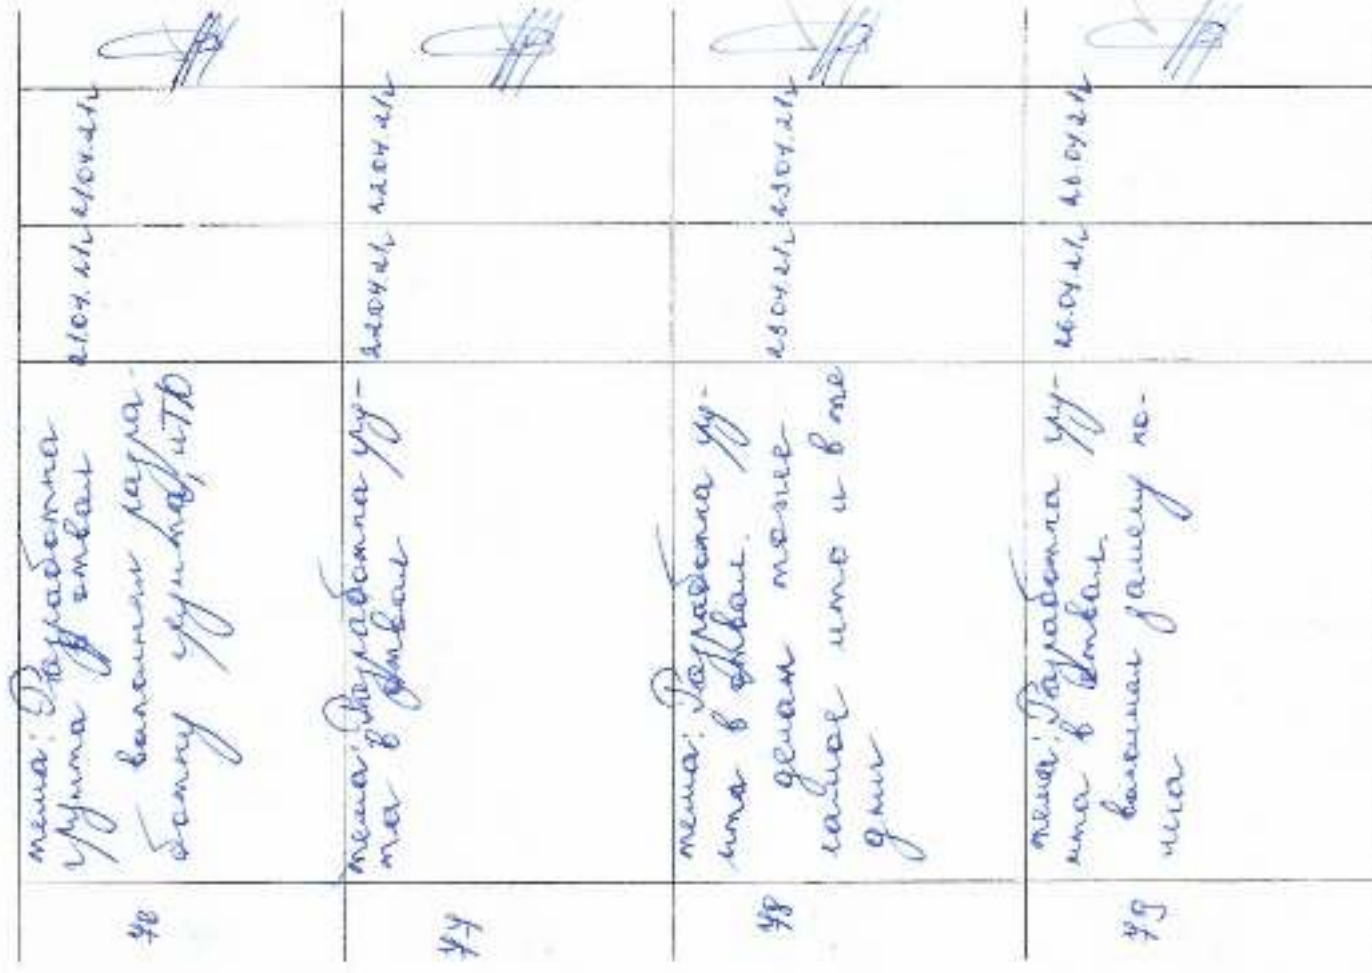 76
тема: Разработка
грунта в отвал
выполнял разра-
ботку грунта, и ТО
21.04.21г 21.04.21г
77
тема: Разработка гру-
та в отвал
22.04.21г 22.04.21г
78
тема: Разработка гру-
нта в отвал.
делал тоже
самое что и в те
дни
23.04.21г 23.04.21г
79
тема: Разработка гру-
нта в отвал.
выполнял замену но-
26.04.21г 26.04.21г